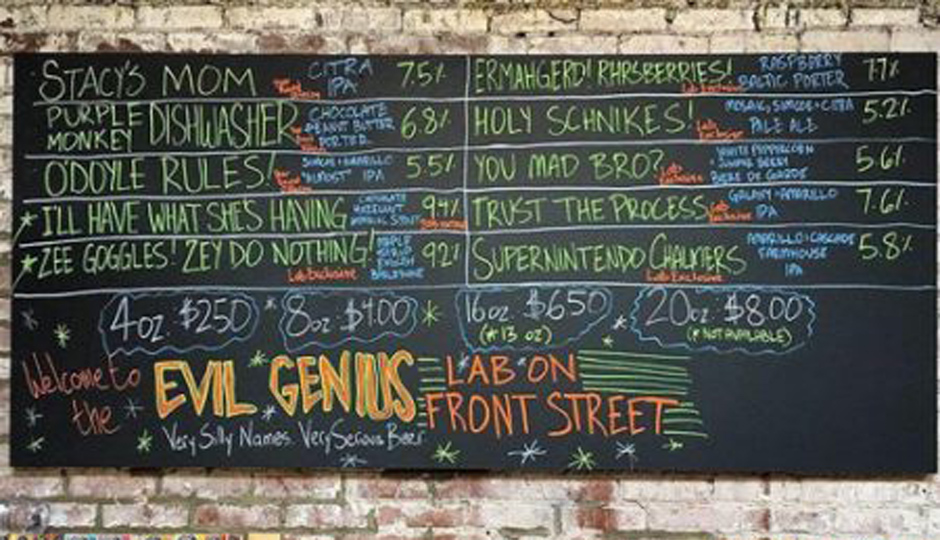 STACY'S MOM CITRA IPA 7.5%
PURPLE MONKEY DISHWASHER CHOCOLATE PEANUT BUTTER PORTER 6.8%
ODOYLE RULES! SIMCOE + AMARILLO "ALMOST" IPA 5.5%
* I'LL HAVE WHAT SHE'S HAVING CHOCOLATE HAZELNUT STOUT 9.4%
* ZEE GOGGLES! ZEY DO NOTHING! Lab Exclusive MAPLE ENGLISH 92%
ERMAHGERD! RHRSBERRIES! Lab Exclusive RASPBERRY BALTIC PORTER 7.7%
HOLY SCHNIKES! Lab Exclusive MOSAIC, SIMCOE + CITRA PALE ALE 5.2%
YOU MAD BRO? Lab Exclusive WHITE PEPPERCORN BIERE DE GARDE 5.6%
TRUST THE PROCESS Lab Exclusive GALAXY + AMARILLO IPA 7.6%
SUPERNINTENDO CHALMERS Lab Exclusive AMARILLO + CASCADE FARMHOUSE IPA 5.8%
4oz $2.50 8oz $4.00 16oz $6.50 20oz $8.00
(* 13 oz) (* NOT AVAILABLE)
Welcome to the EVIL GENIUS LAB ON FRONT STREET
Very Silly Names. Very Serious Beer.